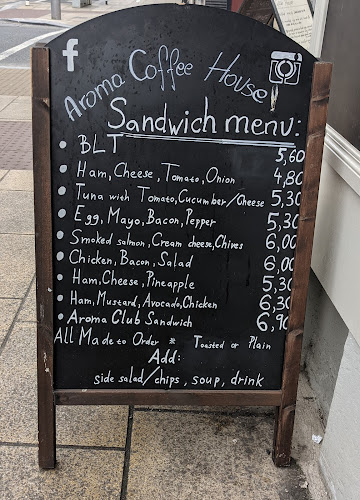 f
Aroma Coffee House
Sandwich menu:
• BLT 5,60
• Ham, Cheese, Tomato, Onion 4,80
• Tuna with Tomato, Cucumber/Cheese 5,30
• Egg, Mayo, Bacon, Pepper 5,30
• Smoked salmon, Cream cheese, Chives 6,00
• Chicken, Bacon, Salad 6,00
• Ham, Cheese, Pineapple 5,30
• Ham, Mustard, Avocado, Chicken 6,30
• Aroma Club Sandwich 6,90
All Made to Order * Toasted or Plain
Add:
side salad/chips, soup, drink